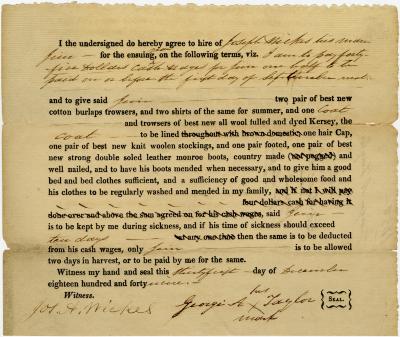 I the undersigned do hereby agree to hire of Joseph Wickes his man
Jim — for the ensuing, on the following terms, viz. I am to pay forty
five dollars cash wages for Jim one half to be
paid on or before the first day of September next
and to give said Jim two pair of best new
cotton burlaps trowsers, and two shirts of the same for summer, and one Coat
— and trowsers of best new all wool fulled and dyed Kersey, the
coat to be lined throughout with brown domestic, one hair Cap,
one pair of best new knit woolen stockings, and one pair footed, one pair of best
new strong double soled leather monroe boots, country made (not pegged) and
well nailed, and to have his boots mended when necessary, and to give him a good
bed and bed clothes sufficient, and a sufficiency of good and wholesome food and
his clothes to be regularly washed and mended in my family, and if not I will pay
four dollars cash for having it
done over and above the sum agreed on for his cash wages, said Jim —
is to be kept by me during sickness, and if his time of sickness should exceed
ten days — at any one time then the same is to be deducted
from his cash wages, only Jim — is to be allowed
two days in harvest, or to be paid by me for the same.
Witness my hand and seal this thirty first — day of December
eighteen hundred and forty
Witness.
Jos. A. Wickes
George A. his x mark Taylor {SEAL.}